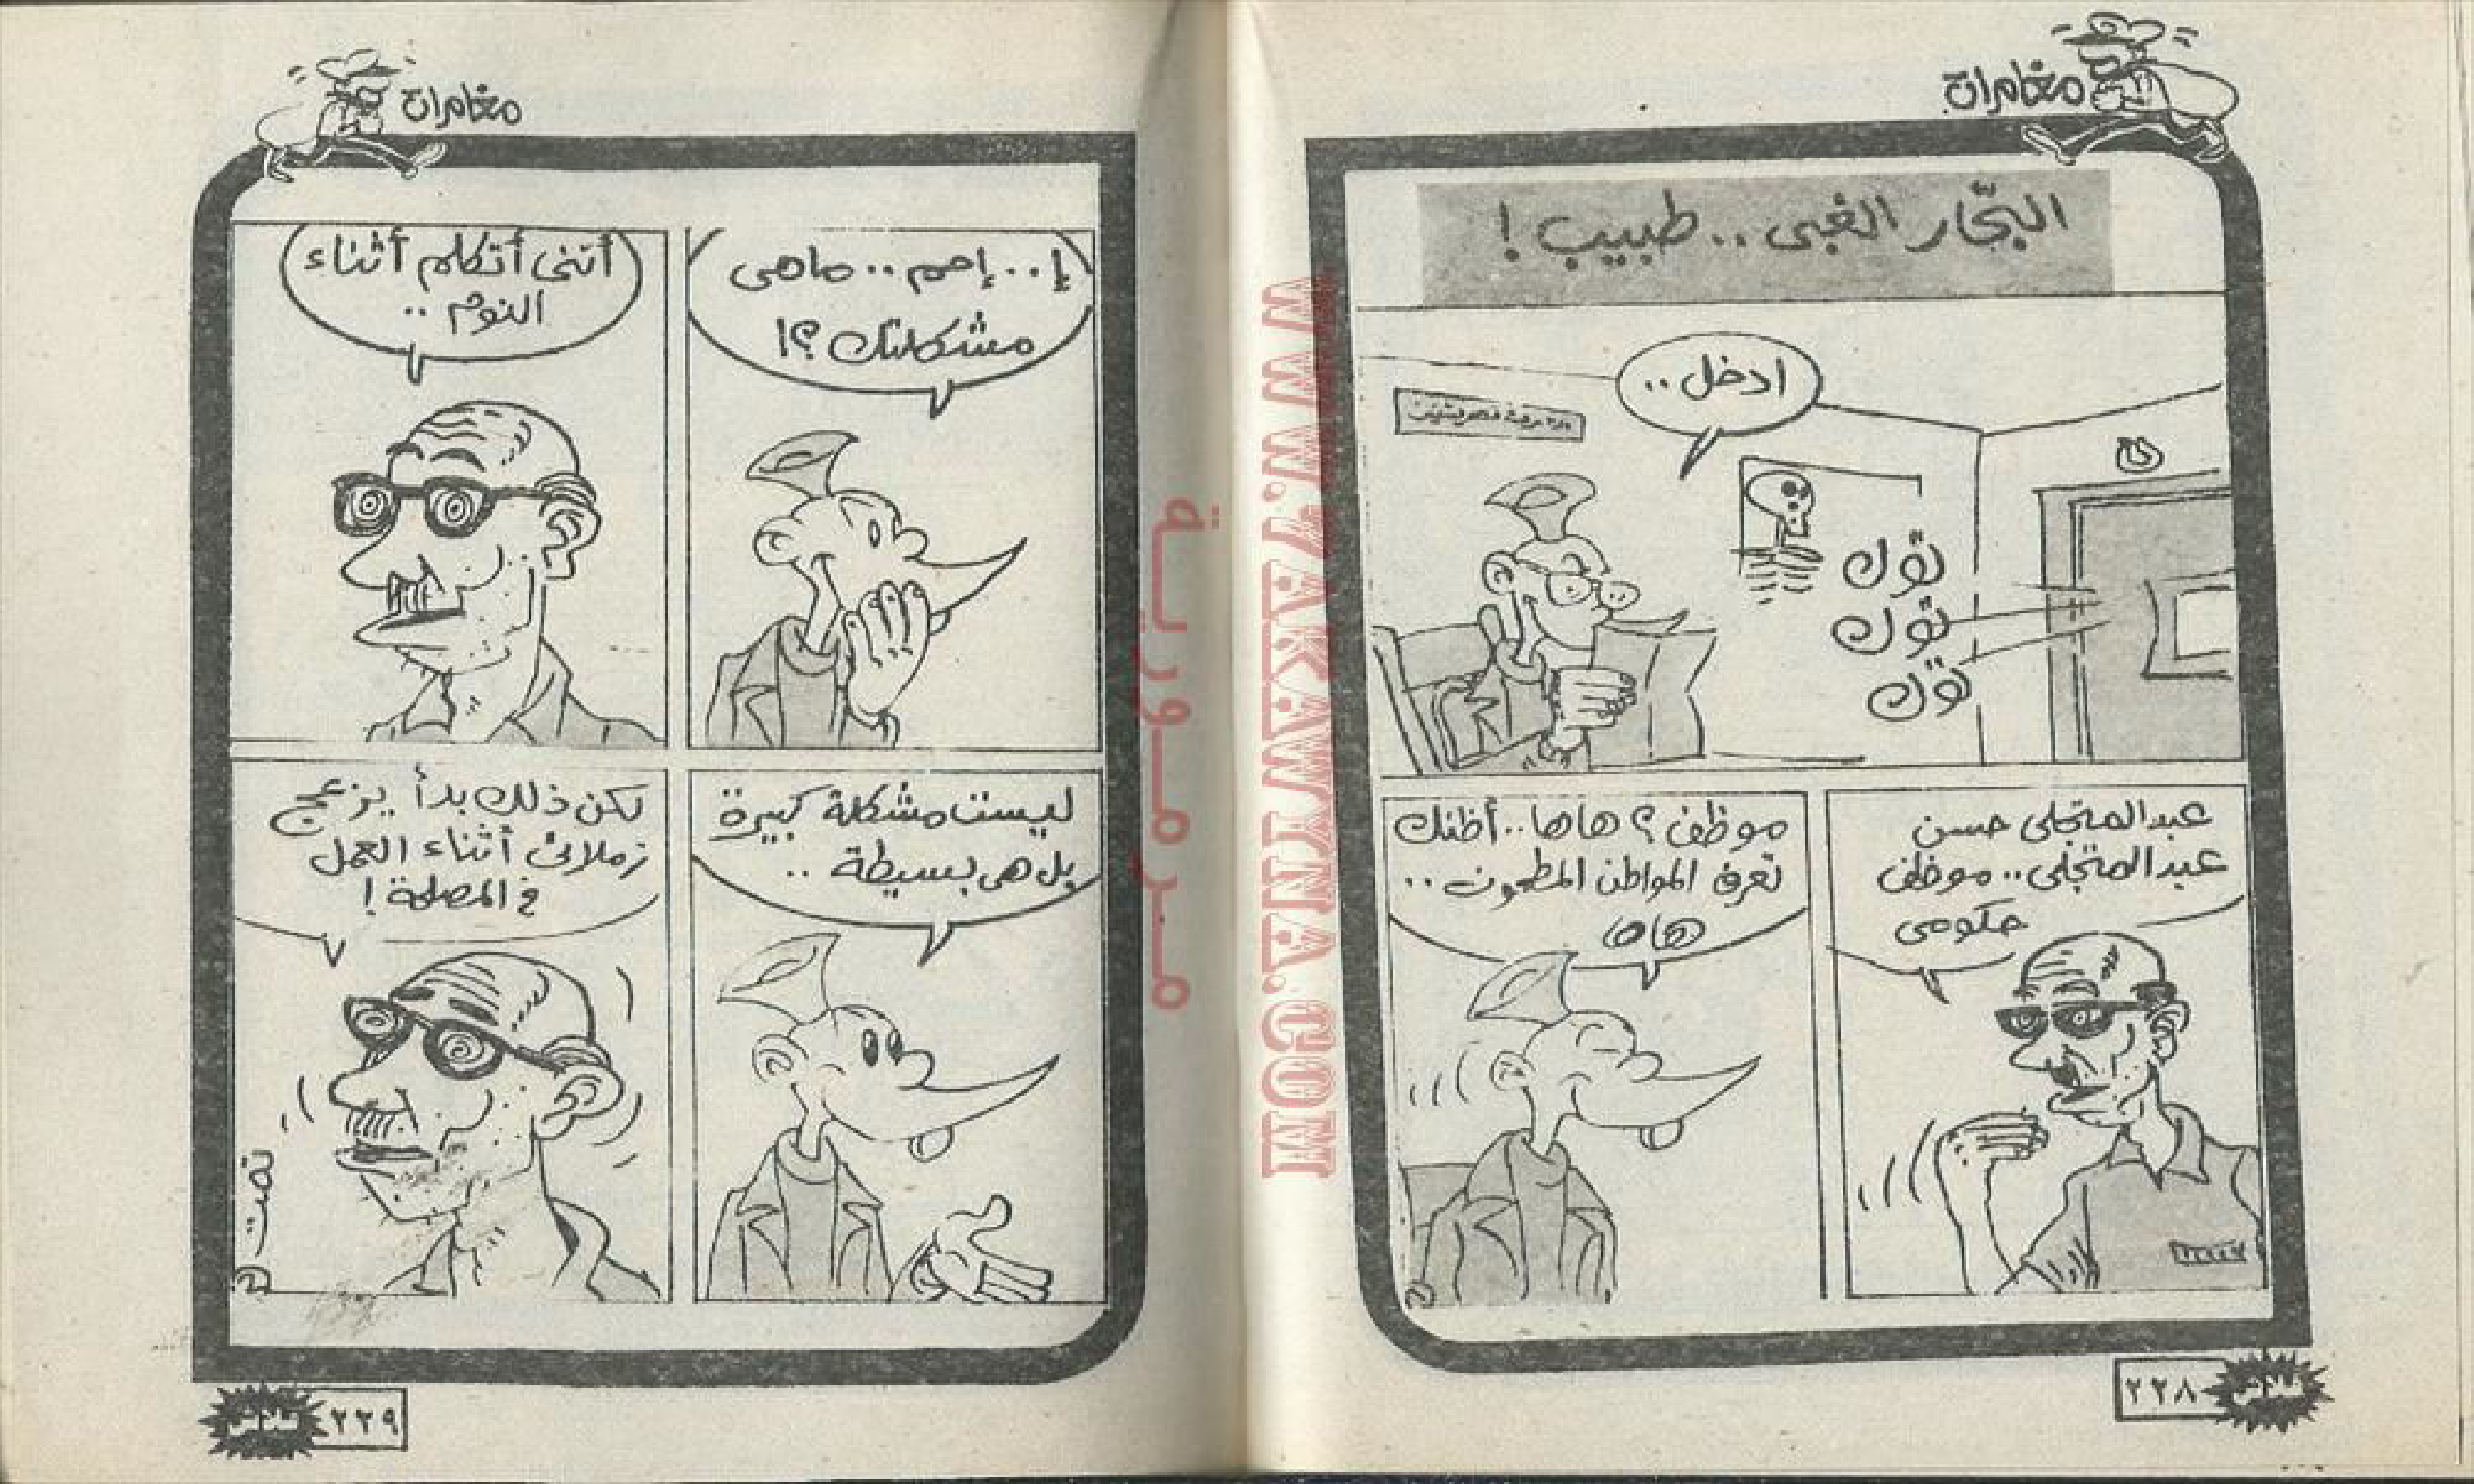 مغامرات
البحّار الغبى .. طبيب !
ادخل ..
توك
توك
توك
عبد المتجلى حسن
عبد المتجلى .. موظف
حكومى
موظف ؟ هاها .. أظنك
تعرف المواطن المطحون ..
هاها
٢٢٨
فلاش
مغامرات
إ .. إحم .. ماهى
مشكلتك ؟!
أننى أتكلم أثناء
النوم ..
ليست مشكلة كبيرة
بل هى بسيطة ..
لكن ذلك بدأ يزعج
زملائى أثناء العمل
فى المصلحة !
تمت
٢٢٩
فلاش
WWW.ZAKAWTNA.COM